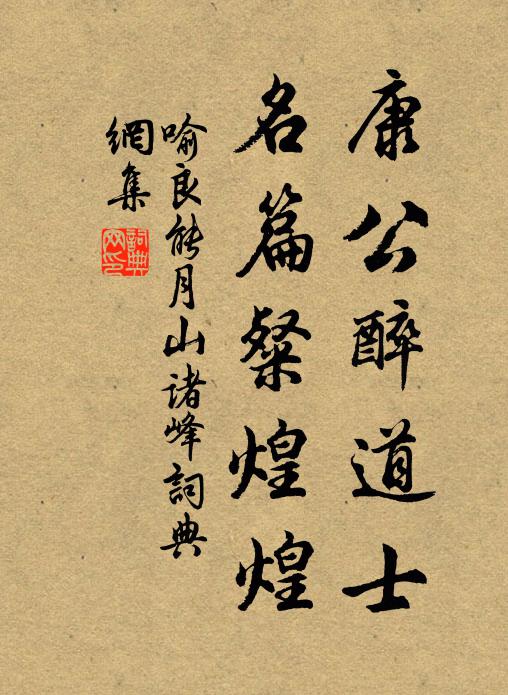 康公醉道士
名篇粲煌煌
喻良能月山諸峰詞典
網集
詞典網印